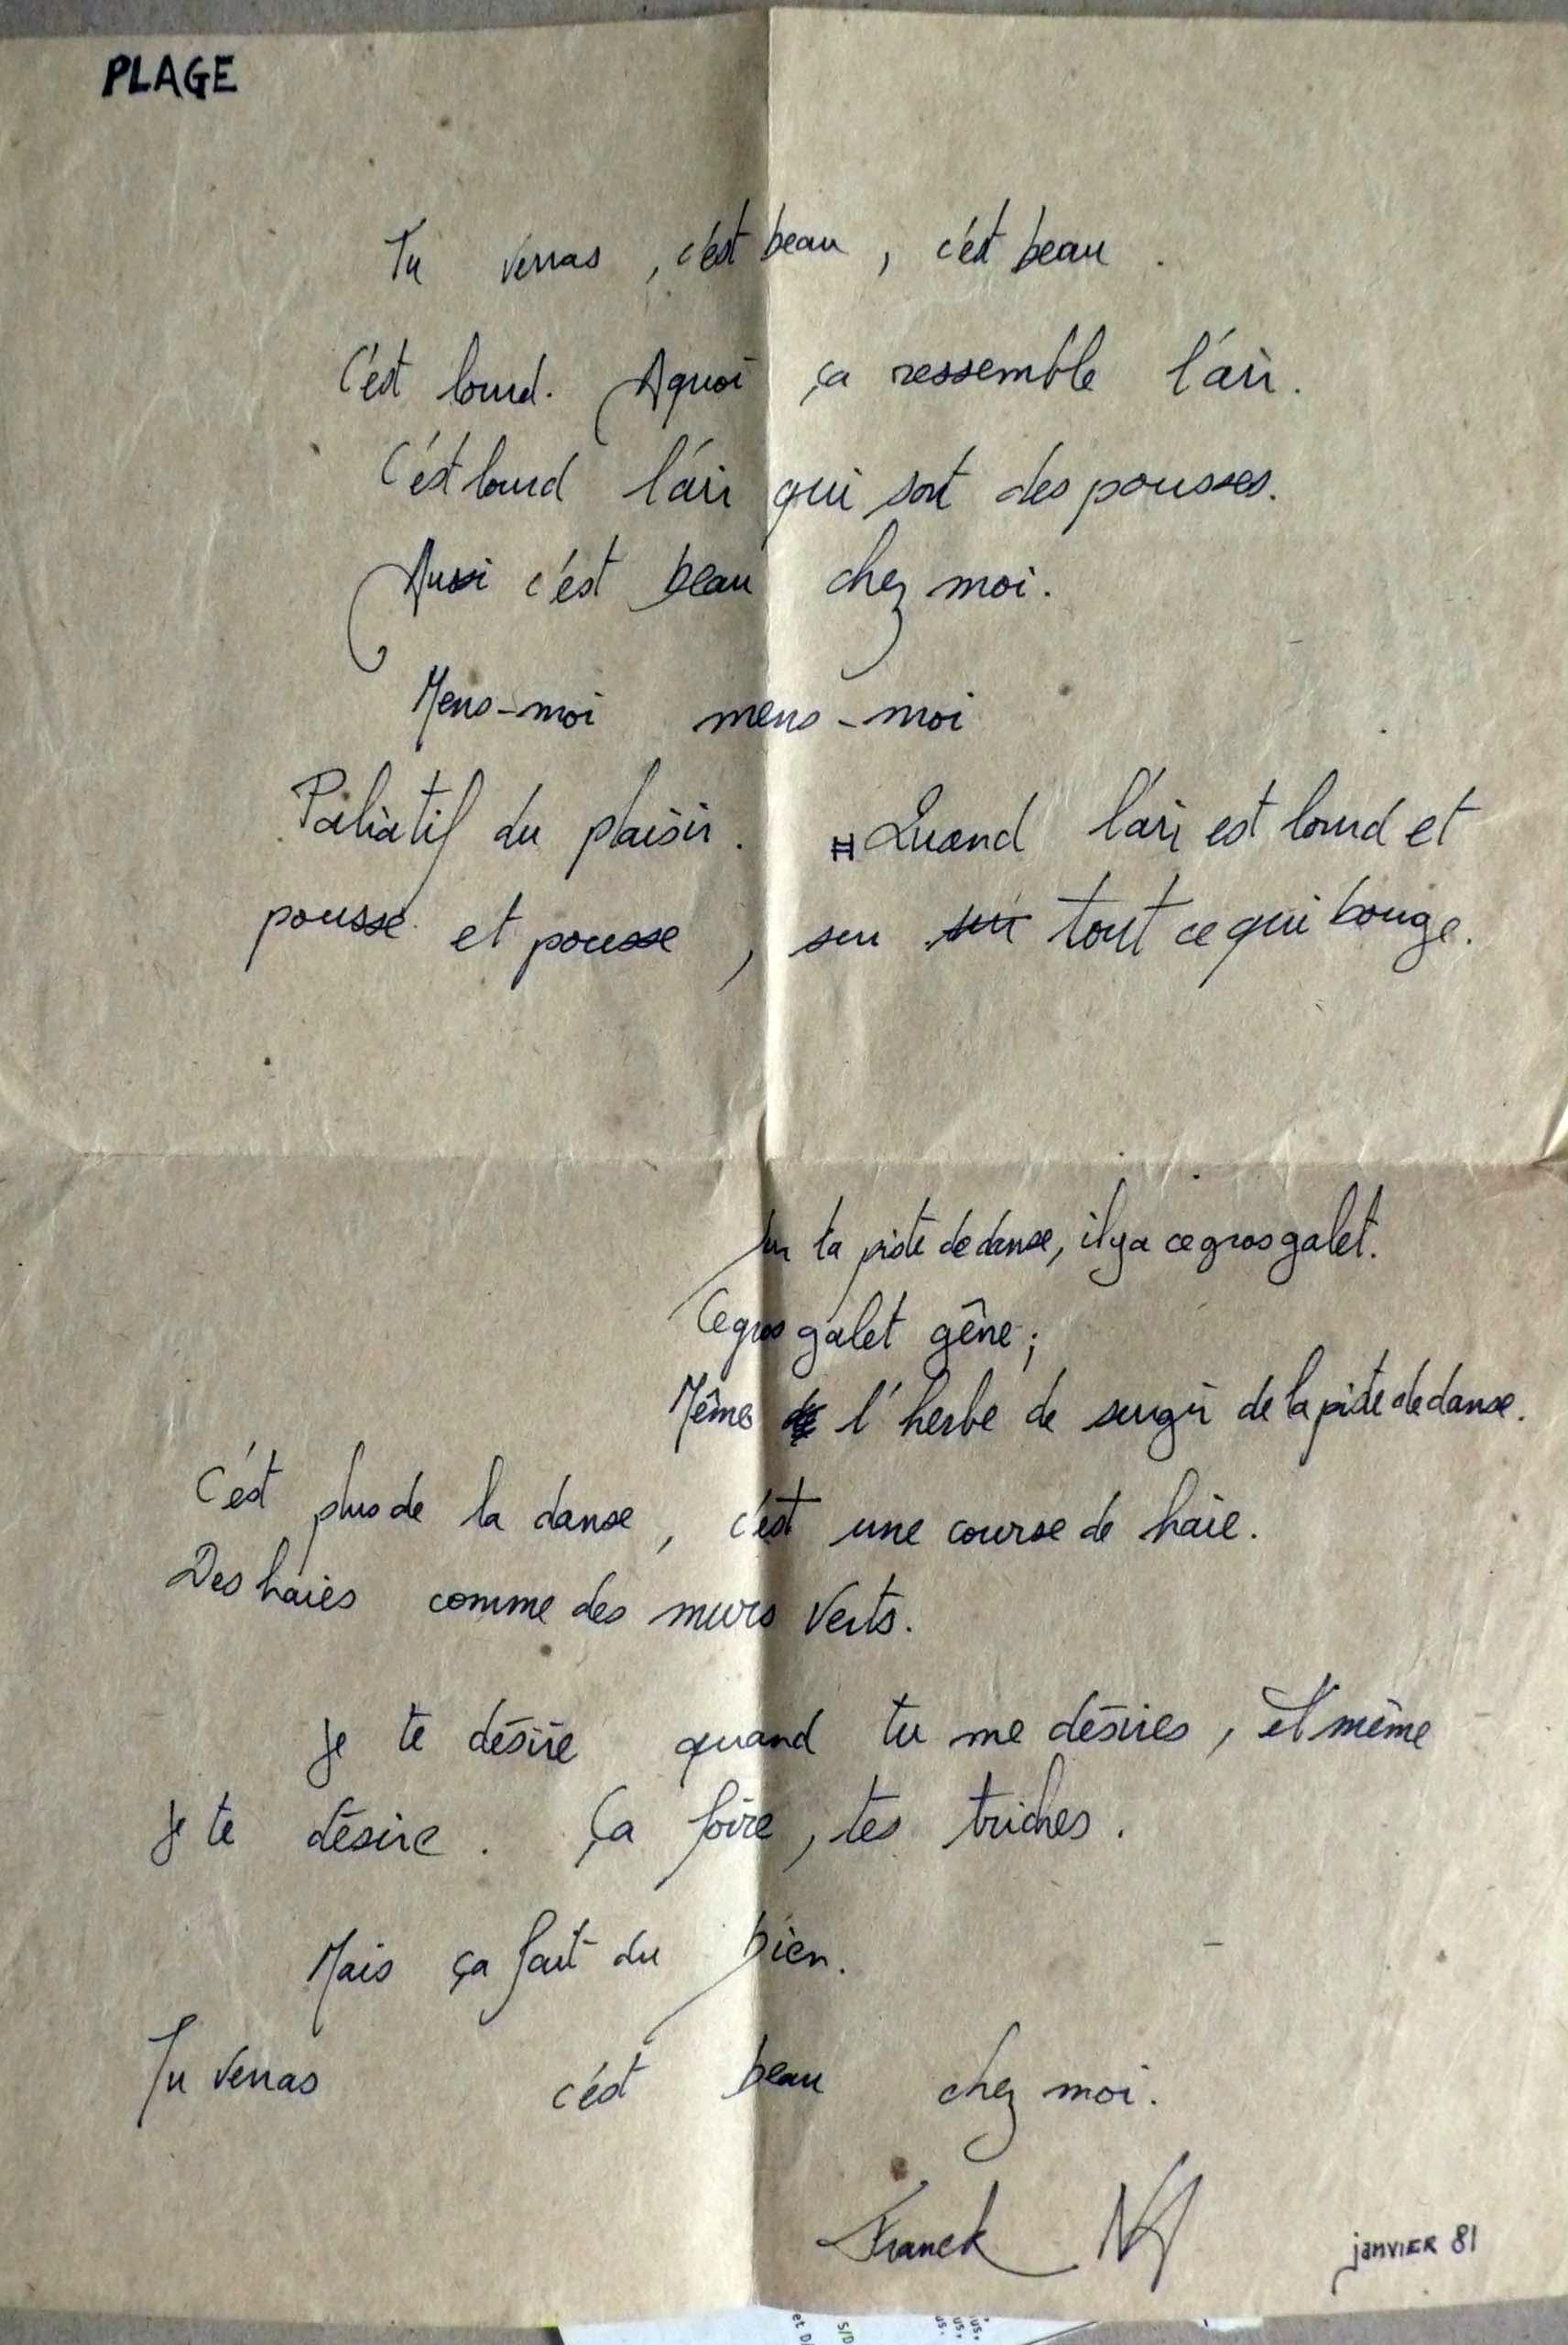 PLAGE
Tu verras, c'est beau, c'est beau.
C'est lourd. A quoi ça ressemble l'air.
C'est lourd l'air qui sort des pousses.
Aussi c'est beau chez moi.
Mens-moi mens-moi
Paliatif du plaisir. Quand l'air est lourd et
pousse et pousse, sur sur tout ce qui bouge.
Sur ta piste de danse, il y a ce gros galet.
Ce gros galet gêne;
Même l'herbe de surgir de la piste de danse.
C'est plus de la danse, c'est une course de haie.
Des haies comme des murs verts.
Je te désire quand tu me désires, et même
je te désire. Ça foire, tes triches.
Mais ça fait du bien.
Tu verras c'est beau chez moi.
Franck
janvier 81